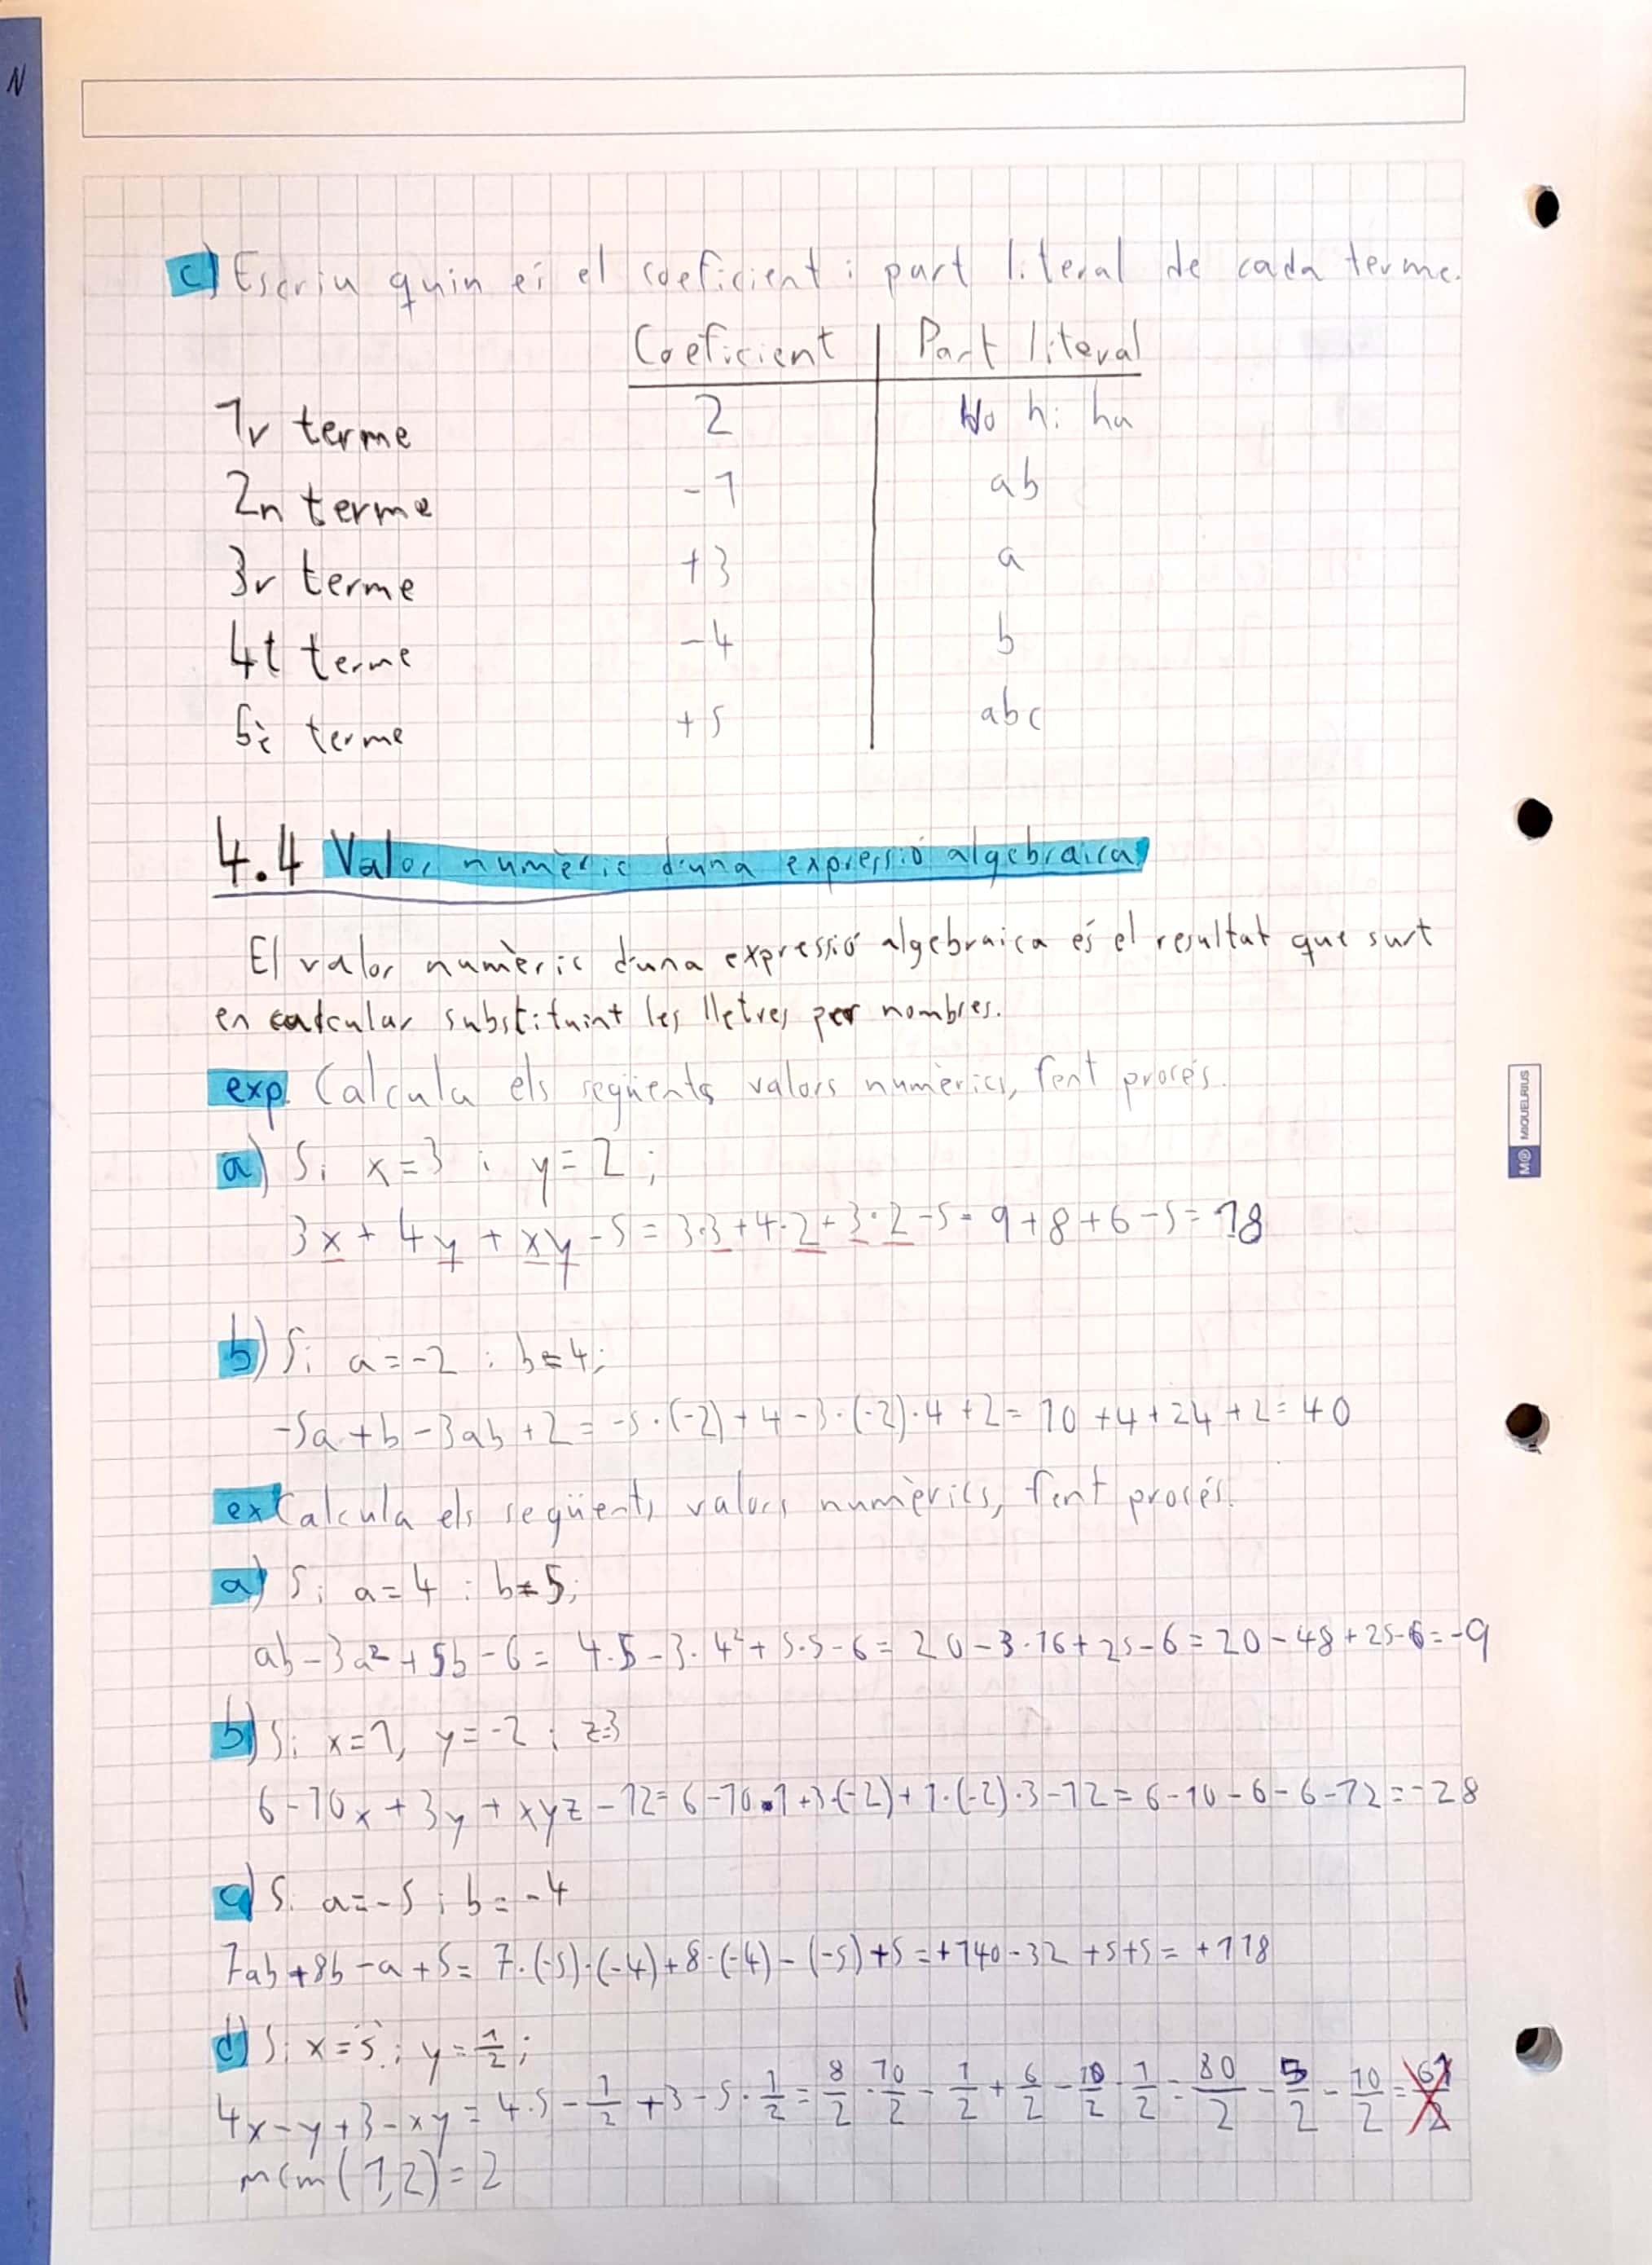 N
c) Escriu quin és el coeficient i part literal de cada terme.
Coeficient | Part literal
1r terme 2 No hi ha
2n terme -1 ab
3r terme +3 a
4t terme -4 b
5è terme +5 abc
4.4 Valor numèric d'una expressió algebraica
El valor numèric d'una expressió algebraica és el resultat que surt
en calcular substituint les lletres per nombres.
exp. Calcula els següents valors numèrics, fent procés.
a) Si x=3 i y=2;
3x + 4y + xy - 5 = 3·3 + 4·2 + 3·2 - 5 = 9 + 8 + 6 - 5 = 18
b) Si a=-2 i b=4;
-5a + b - 3ab + 2 = -5·(-2) + 4 - 3·(-2)·4 + 2 = 10 + 4 + 24 + 2 = 40
ex Calcula els següents valors numèrics, fent procés.
a) Si a=4 i b=5;
ab - 3a² + 5b - 6 = 4·5 - 3·4² + 5·5 - 6 = 20 - 3·16 + 25 - 6 = 20 - 48 + 25 - 6 = -9
b) Si x=1, y=-2 i z=3
6 - 10x + 3y + xyz - 12 = 6 - 10·1 + 3·(-2) + 1·(-2)·3 - 12 = 6 - 10 - 6 - 6 - 12 = -28
c) Si a=-5 i b=-4
7ab + 8b - a + 5 = 7·(-5)·(-4) + 8·(-4) - (-5) + 5 = +140 - 32 + 5 + 5 = +118
d) Si x=5 i y=1/2;
4x - y + 3 - xy = 4·5 - 1/2 + 3 - 5·1/2 = 8/2 · 10/2 - 1/2 + 6/2 - 10/2 · 1/2 = 80/2 - 5/2 - 10/2 =
mcm(1,2) = 2
MR MIQUELRIUS